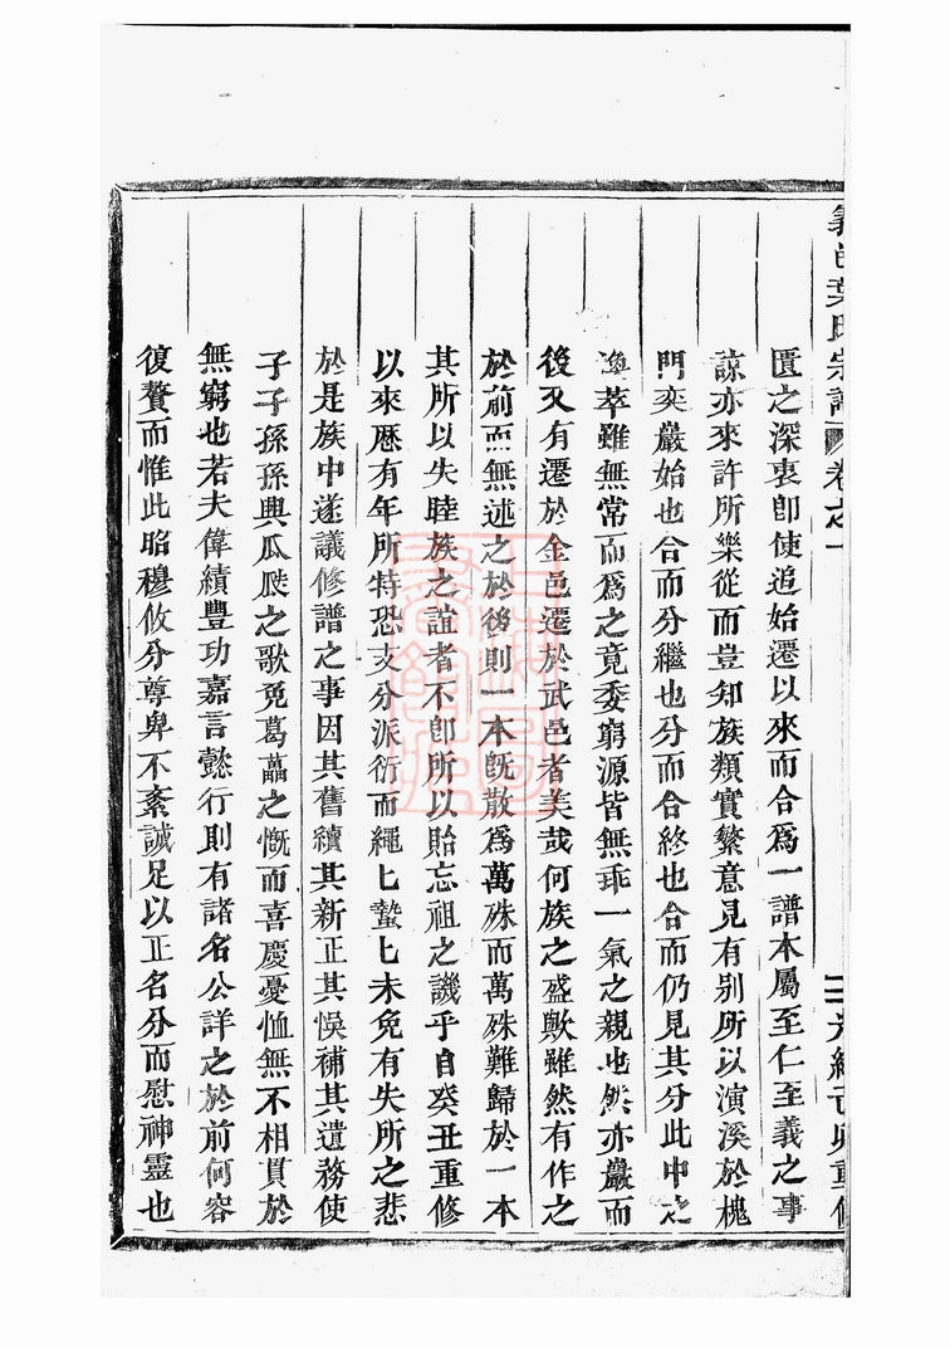 葉氏宗譜 卷之一 二 光緒丁卯重修
匱之深衷卽使追始遷以來而合爲一譜本屬至仁至義之事
諒亦來許所樂從而豈知族類實繁意見有別所以演溪於槐
門奕嚴始也合而分繼也分而合終也合而仍見其分此中之
渙萃雖無常而爲之竟委窮源皆無乖一氣之親也然亦嚴而
後又有遷於金邑遷於武邑者美哉何族之盛歟雖然有作之
於前而無述之於後則一本旣散爲萬殊而萬殊難歸於一本
其所以失睦族之誼者不卽所以貽忘祖之譏乎自癸丑重修
以來歷有年所特恐支分派衍而繩匕蟄匕未免有失所之悲
於是族中遂議修譜之事因其舊續其新正其悞補其遺務使
子子孫孫興瓜瓞之歌免葛藟之慨而喜慶憂恤無不相貫於
無窮也若夫偉績豐功嘉言懿行則有諸名公詳之於前何容
復贅而惟此昭穆攸分尊卑不紊誠足以正名分而慰神靈也